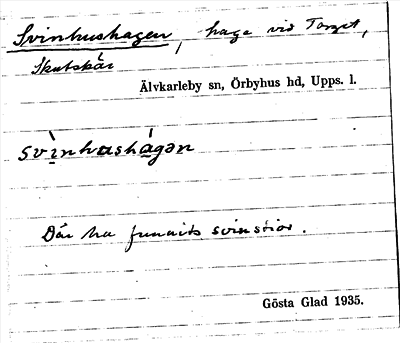 Svinhushagen, hage vid Torget,
Skutskär
Älvkarleby sn, Örbyhus hd, Upps. l.
svìnhushágən
Där ha funnits svinstior.
Gösta Glad 1935.